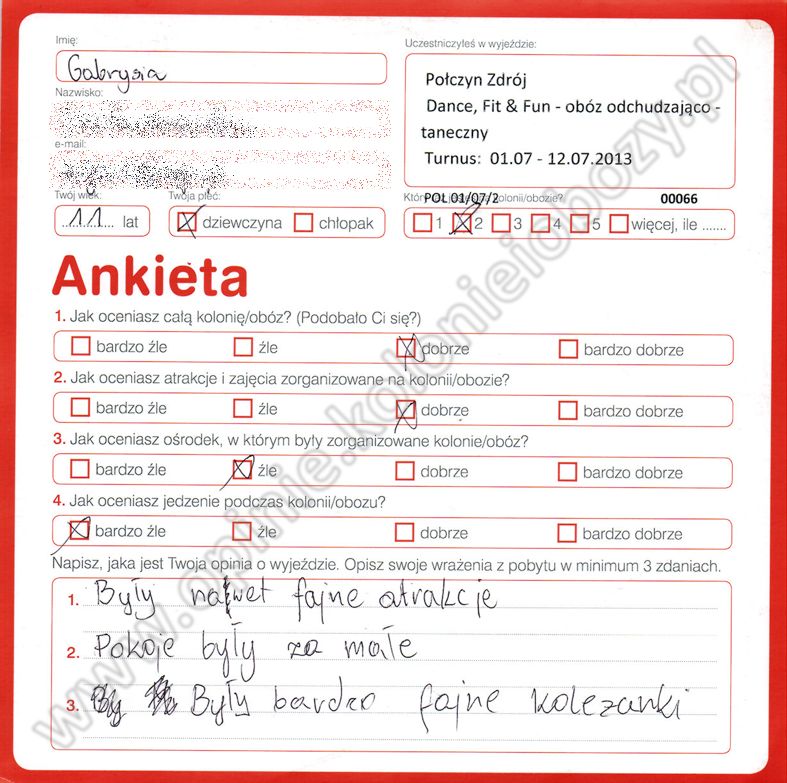 Imię:
Gabrysia
Nazwisko:
e-mail:
Twój wiek:
11 lat
Twoja płeć:
dziewczyna chłopak
Uczestniczyłeś w wyjeździe:
Połczyn Zdrój
Dance, Fit & Fun - obóz odchudzająco -
taneczny
Turnus: 01.07 - 12.07.2013
POL 01/07/2 00066
kolonii/obozie?
1 2 3 4 5 więcej, ile .......
Ankieta
1. Jak oceniasz całą kolonię/obóz? (Podobało Ci się?)
bardzo źle źle dobrze bardzo dobrze
2. Jak oceniasz atrakcje i zajęcia zorganizowane na kolonii/obozie?
bardzo źle źle dobrze bardzo dobrze
3. Jak oceniasz ośrodek, w którym były zorganizowane kolonie/obóz?
bardzo źle źle dobrze bardzo dobrze
4. Jak oceniasz jedzenie podczas kolonii/obozu?
bardzo źle źle dobrze bardzo dobrze
Napisz, jaka jest Twoja opinia o wyjeździe. Opisz swoje wrażenia z pobytu w minimum 3 zdaniach.
1. Były nawet fajne atrakcje
2. Pokoje były za małe
3. Były bardzo fajne koleżanki
www.opinie.kolonieiobozy.pl